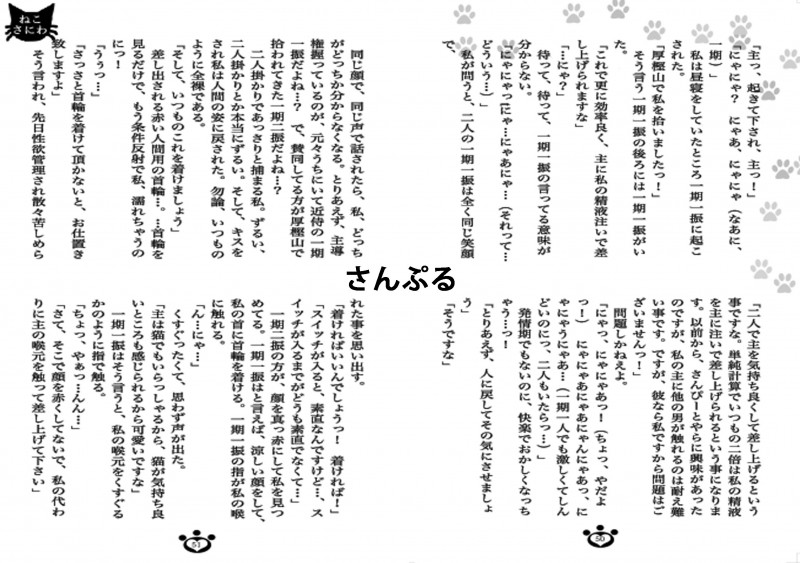 「主っ、起きて下され、主っ！」
「にゃにゃ？　にゃあ、にゃにゃ（なあに、
一期）」
　私は昼寝をしていたところ一期一振に起こ
された。
「厚樫山で私を拾いましたっ！」
　そう言う一期一振の後ろには一期一振がい
た。
「これで更に効率良く、主に私の精液注いで差
し上げられますな」
「…にゃ？」
　待って、待って、一期一振の言ってる意味が
分からない。
「にゃにゃっ！にゃ…にゃあにゃ…（それって…
どういう…）」
　私が問うと、二人の一期一振は全く同じ笑顔
で、
「二人で主を気持ち良くして差し上げるという
事ですな。単純計算でいつもの二倍は私の精液
を主に注いで差し上げられるという事になりま
す。以前から、さんぴーとやらに興味があった
のですが、私の主に他の男が触れるのは耐え難
い事です。ですが、彼なら私ですから問題はご
ざいませんっ！」
　問題しかねえよ。
「にゃっ、にゃにゃあっ！（ちょっ、やだよ
っ！）　にゃにゃあにゃあにゃんにゃあっ、に
ゃにゃうにゃあ…（一期一人でも激しくてしん
どいのにっ、二人もいたらっ…）」
　発情期でもないのに、快楽でおかしくなっち
ゃう…っ！
「とりあえず、人に戻してその気にさせましょ
う」
「そうですな」
50
ねこ
さにわ
　同じ顔で、同じ声で話されたら、私、どっち
がどっちか分からなくなる。とりあえず、主導
権握っているのが、元々うちにいて近侍の一期
一振だよね…？　で、賛同してる方が厚樫山で
拾われてきた一期二振だよね…？
　二人掛かりであっさりと捕まる私。ずるい、
二人掛かりとか本当にずるい。そして、キスを
され私は人間の姿に戻された。勿論、いつもの
ように全裸である。
「そして、いつものこれを着けましょう」
　差し出される赤い人間用の首輪…。…首輪を
見るだけで、もう条件反射で私、濡れちゃうの
にっ！
「うぅっ…」
「さっさと首輪を着けて頂かないと、お仕置き
致しますよ」
　そう言われ、先日性欲管理され散々苦しめら
れた事を思い出す。
「着ければいいんでしょうっ！　着ければ！」
「スイッチが入ると、素直なんですけど…、ス
イッチが入るまでがどうも素直でなくて…」
　一期二振の方が、顔を真っ赤にして私を見つ
めてる。一期一振はと言えば、涼しい顔をして、
私の首に首輪を着ける。一期一振の指が私の喉
に触れる。
「ん…にゃ…」
　くすぐったくて、思わず声が出た。
「主は猫でもいらっしゃるから、猫が気持ち良
いところも感じられるから可愛いですな」
　一期一振はそう言うと、私の喉元をくすぐる
かのように指で触る。
「ちょっ、やぁっ…ん…」
「さて、そこで顔を赤くしてないで、私の代わ
りに主の喉元を触って差し上げて下さい」
51
さんぷる